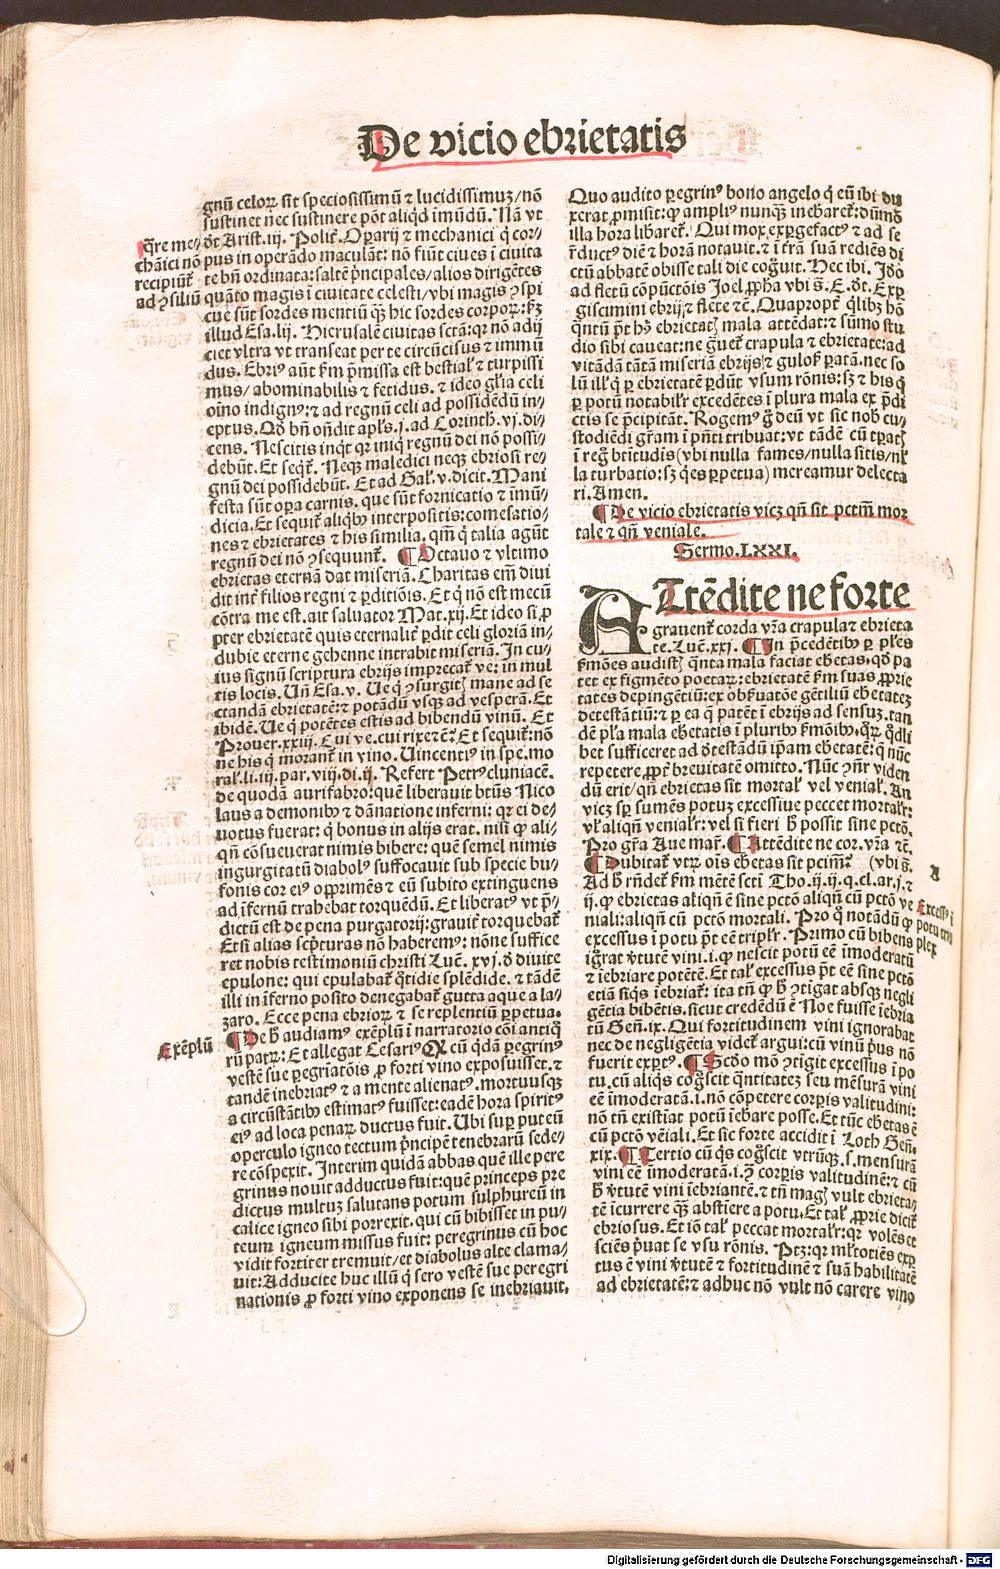 De vicio ebrietatis
gnū celoꝝ sit speciosissimū ⁊ lucidissimuꝫ/nō
sustinet nec sustinere pōt aliqd imūdū. Nā vt
dt Arist.iij. Polit̄. Oꝑarij ⁊ mechanici q̇ cor⸗
pus in operādo maculāt: nō fiūt ciues ī ciuita
te bn̄ ordinata: saltē p̄ncipales/alios dirigētes
quāto magis ī ciuitate celesti/vbi magis ꝯspi
cue sūt sordes mentiū qꝫ hic sordes corpoꝝ: ẜꝫ
illud Esa.lij. Hierusalē ciuitas sctā: qꝛ nō adij
ciet vltra vt transeat per te circūcisus ⁊ immū
dus. Ebriꝰ aūt ẜm p̄missa est bestial̄ ⁊ turpissi
mus/abominabilis ⁊ fetidus. ⁊ ideo gl̄ia celi
oīno indignꝰ: ⁊ ad regnū celi ad possidēdū in⸗
eptus. Qd̄ bn̄ on̄dit apl̄s.j. ad Corinth.vj. di⸗
cens. Nescitis inqt̄ qꝛ iniq̇ regnū dei nō possi⸗
debūt. Et seqr̄. Neqꝫ maledici neqꝫ ebriosi re⸗
gnū dei possidebūt. Et ad Gal̄.v. dicit. Mani
festa sūt oꝑa carnis. que sūt fornicatio ⁊ īmū⸗
dicia. Et sequit̄ aliqbꝰ interpositis: comesatio⸗
nes ⁊ ebrietates ⁊ his similia. qm̄ q̇ talia agūt
regnū dei nō ꝯsequunt̄. ¶ Octauo ⁊ vltimo
ebrietas eternā dat miseriā. Charitas em̄ diui
dit int̄ filios regni ⁊ ꝑditiōis. Et q̇ nō est mecū
cōtra me est. ait saluator Mat.xij. Et ideo si ꝓ
pter ebrietatē quis eternalit̄ ꝑdit celi gloriā in⸗
dubie eterne gehenne intrabit miseriā. In cu⸗
ius signū scriptura ebrijs imprecat̄ ve: in mul
tis locis. Vn̄ Esa.v. Ue q̇ ꝯsurgitꝫ mane ad se
ctandā ebrietatē: ⁊ potādū vsqꝫ ad vesperā. Et
ibidē. Ue q̇ potētes estis ad bibendū vinū. Et
Prouer.xxiij. Cui ve. cui rixe ⁊ē? Et sequit̄: nō
ne his q̇ morant̄ in vino. Uincentiꝰ in spe. mo
ral̄.li.iij.par.viij.di.ij. Refert Petrꝰ cluniacē.
de quodā aurifabro: quē liberauit btūs Nico
laus a demonibꝰ ⁊ dānatione inferni: qꝛ ei de⸗
uotus fuerat: q̇ bonus in alijs erat. nisi ꝙ ali⸗
qn̄ cōsueuerat nimis bibere: quē semel nimis
ingurgitatū diabolꝰ suffocauit sub specie bu⸗
fonis cor eiꝰ opprimēs ⁊ eū subito extinguens
ad īfernū trahebat torquēdū. Et liberatꝰ vt p̄⸗
dictū est de pena purgatorij: grauit̄ torquebat̄
Et si alias scp̄turas nō haberemꝰ: nōne suffice
ret nobis testimoniū christi Luč. xvj. ꝺ diuite
epulone: qui epulabat̄ q̇tidie splēdide. ⁊ tādē
illi in īferno posito denegabat̄ gutta aque a la⸗
zaro. Ecce pena ebrioꝝ ⁊ se replentiū ꝑpetua.
¶ De ħ audiamꝰ exēplū ī narratorio cōi antiq̇
rū patꝝ: Et allegat Cesariꝰ Qꝙ cū q̇dā ꝑegrinꝰ
vestē sue ꝑegriatōis ꝓ forti vino exposuisset. ⁊
tandē inebriatꝰ ⁊ a mente alienatꝰ. mortuusqꝫ
a circūstātibꝰ estimatꝰ fuisset: eadē hora spiritꝰ
eiꝰ ad loca penaꝝ ductus fuit. Ubi suꝑ puteū
operculo igneo tectum p̄ncipē tenebrarū sede⸗
re cōspexit. Interim quidā abbas quē ille pere
grinus nouit adductus fuit: quē princeps pre
dictus multuꝫ salutans potum sulphureū in
calice igneo sibi porrexit. qui cū bibisset in pu⸗
teum igneum missus fuit: peregrinus cū hoc
vidit fortiter tremuit/et diabolus alte clama⸗
uit: Adducite huc illū q̇ sero vestē sue peregri
nationis ꝓ forti vino exponens se inebriauit.
q̄re me⸗
chāici nō
recipiūt̄
ad ꝯsiliū
Exēplū
Quo audito ꝑegrinꝰ bono angelo q̇ eū ibi du
xerat ꝓmisit: ꝙ ampliꝰ nunqꝫ inebꝛiaret̄: dūmō
illa hora libaret̄. Qui mox exꝑgefactꝰ ⁊ ad se
rductꝰ diē ⁊ horā notauit. ⁊ ī trā suā rediēs di
ctū abbatē obisse tali die cog̃uit. Hec ibi. Idō
ad fletū cōpūctōis Joel ꝓpha vbi s̄. E. dt. Exꝑ
giscimini ebrij ⁊ flete ⁊c̄. Quapropt̄ q̇libꝫ hō
q̇ntū pt̄ hꝰ ebrietatꝫ mala attēdat: ⁊ sūmo stu
dio sibi caueat: ne g̃uet̄ crapula ⁊ ebrietate: ad
vitādā tātā miseriā ebrijs ⁊ gulosꝭ patā. nec so
lū ill̓ q̇ ꝑ ebrietatē ꝑdūt vsum rōnis: sꝫ ⁊ his q̇
ꝑ potū notabilr̄ excedētes ī plura mala ex p̄di
ctis se p̄cipitāt. Rogemꝰ g̊ deū vt sic nob̄ cu⸗
stodiēdi gr̄am ī pn̄ti tribuat: vt tādē cū tꝑatꝫ
ī reg̊ btītudis (vbi nulla fames/nulla sitis/nl̓
la turbatio: sꝫ q̇es ꝑpetua) mereamur delecta
ri. Amen.
¶ De vicio ebrietatis vicꝫ qn̄ sit pctm̄ mor
tale ⁊ qn̄ veniale.
Sermo.LXXI.
Attēdite ne forte
grauent̄ corda vr̄a crapula ⁊ ebrieta
te. Luč.xxj. ¶ In p̄cedētibꝰ ꝑ pl̓es
ẜmōes audistꝫ q̇nta mala faciat eb̓etas. qd̓ pa
tet ex figmēto poetaꝝ: ebrietatē ẜm suas ꝓprie
tates depingētiū: ex obẜuatōe gētiliū eb̓etateꝫ
detestātiū: ⁊ ꝑ ea q̇ patēt ī ebrijs ad sensuꝫ. tan
dē pl̓a mala eb̓etatis ī pluribꝰ ẜmōibꝰ. qꝝ q̇dli
bet sufficeret ad ꝺtestādū ip̄am eb̓etatē: q̇ nūc
repetere ꝓpt̄ breuitatē omitto. Nūc ꝯn̄r viden
dū erit/qn̄ ebrietas sit mortal̓ vel venial̓. An
vicꝫ sꝑ sumēs potuꝫ excessiue peccet mortalr̄:
vl̓ aliqn̄ venialr̄: vel si fieri ħ possit sine pctō.
Pro gr̄a Aue mar̄. ¶ Attēdite ne cor. vr̄a ⁊c̄.
¶ Dubitat̄ vtꝝ oīs eb̓etas sit pctm̄? (vbi s̄.
Ad ħ rn̄det̄ ẜm mētē sctī Tho.ij.ij.q.cl.ar.j.⁊
ij. ꝙ ebrietas aliqn̄ ē sine pctō aliqn̄ cū pctō ve
niali: aliqn̄ cū pctō mortali. Pro q̊ notādū ꝙ
excessus ī potu pt̄ eē triplr̄. Primo cū bibens
ig̃rat v̓tutē vini.i. ꝙ nescit potū eē īmoderatū
⁊ iebriare potētē. Et tal̓ excessus pt̄ eē sine pctō
etiā siq̇s īebriat̄: ita tn̄ ꝙ ħ ꝯtigat absqꝫ negli
gētia bibētis. sicut credēdū ē Noe fuisse īebria
tū Gen̄.ix. Qui fortitudinem vini ignorabat
nec de negligētia videt̄ argui: cū vinū pꝰus nō
fuerit exꝑtꝰ. ¶ Scdo mō ꝯtigit excessus ī po
tu. cū aliqs cog̃scit q̇ntitateꝫ seu mēsurā vini
eē īmoderatā.i. nō cōpetere corꝑis valitudini:
nō tn̄ existīat potū īeb̓are posse. Et tūc eb̓etas ē
cū pctō vēiali. Et sic forte accidit ī Loth Gen̄.
xix. ¶ Tertio cū q̇s cog̃scit vtrūqꝫ.s. mensurā
vini eē īmoderatā.i.ꝯ corꝑis valitudinē: ⁊ cū
ħ v̓tutē vini īebriantē. ⁊ tn̄ magꝫ vult ebrieta⸗
tē īcurrere qꝫ abstiere a potu. Et tal̓ ꝓprie dicit̄
ebriosus. Et iō tal̓ peccat mortalr̄: qꝛ volēs et
sciēs p̓uat se vsu rōnis. Ptꝫ: qꝛ ml̓totiēs exꝑ
tus ē vini v̓tutē ⁊ fortitudinē ⁊ suā habilitatē
ad ebrietatē: ⁊ adhuc nō vult nō carere vino
Excessꝰ ī
potu tri
plex
Digitalisierung gefördert durch die Deutsche Forschungsgemeinschaft - DFG